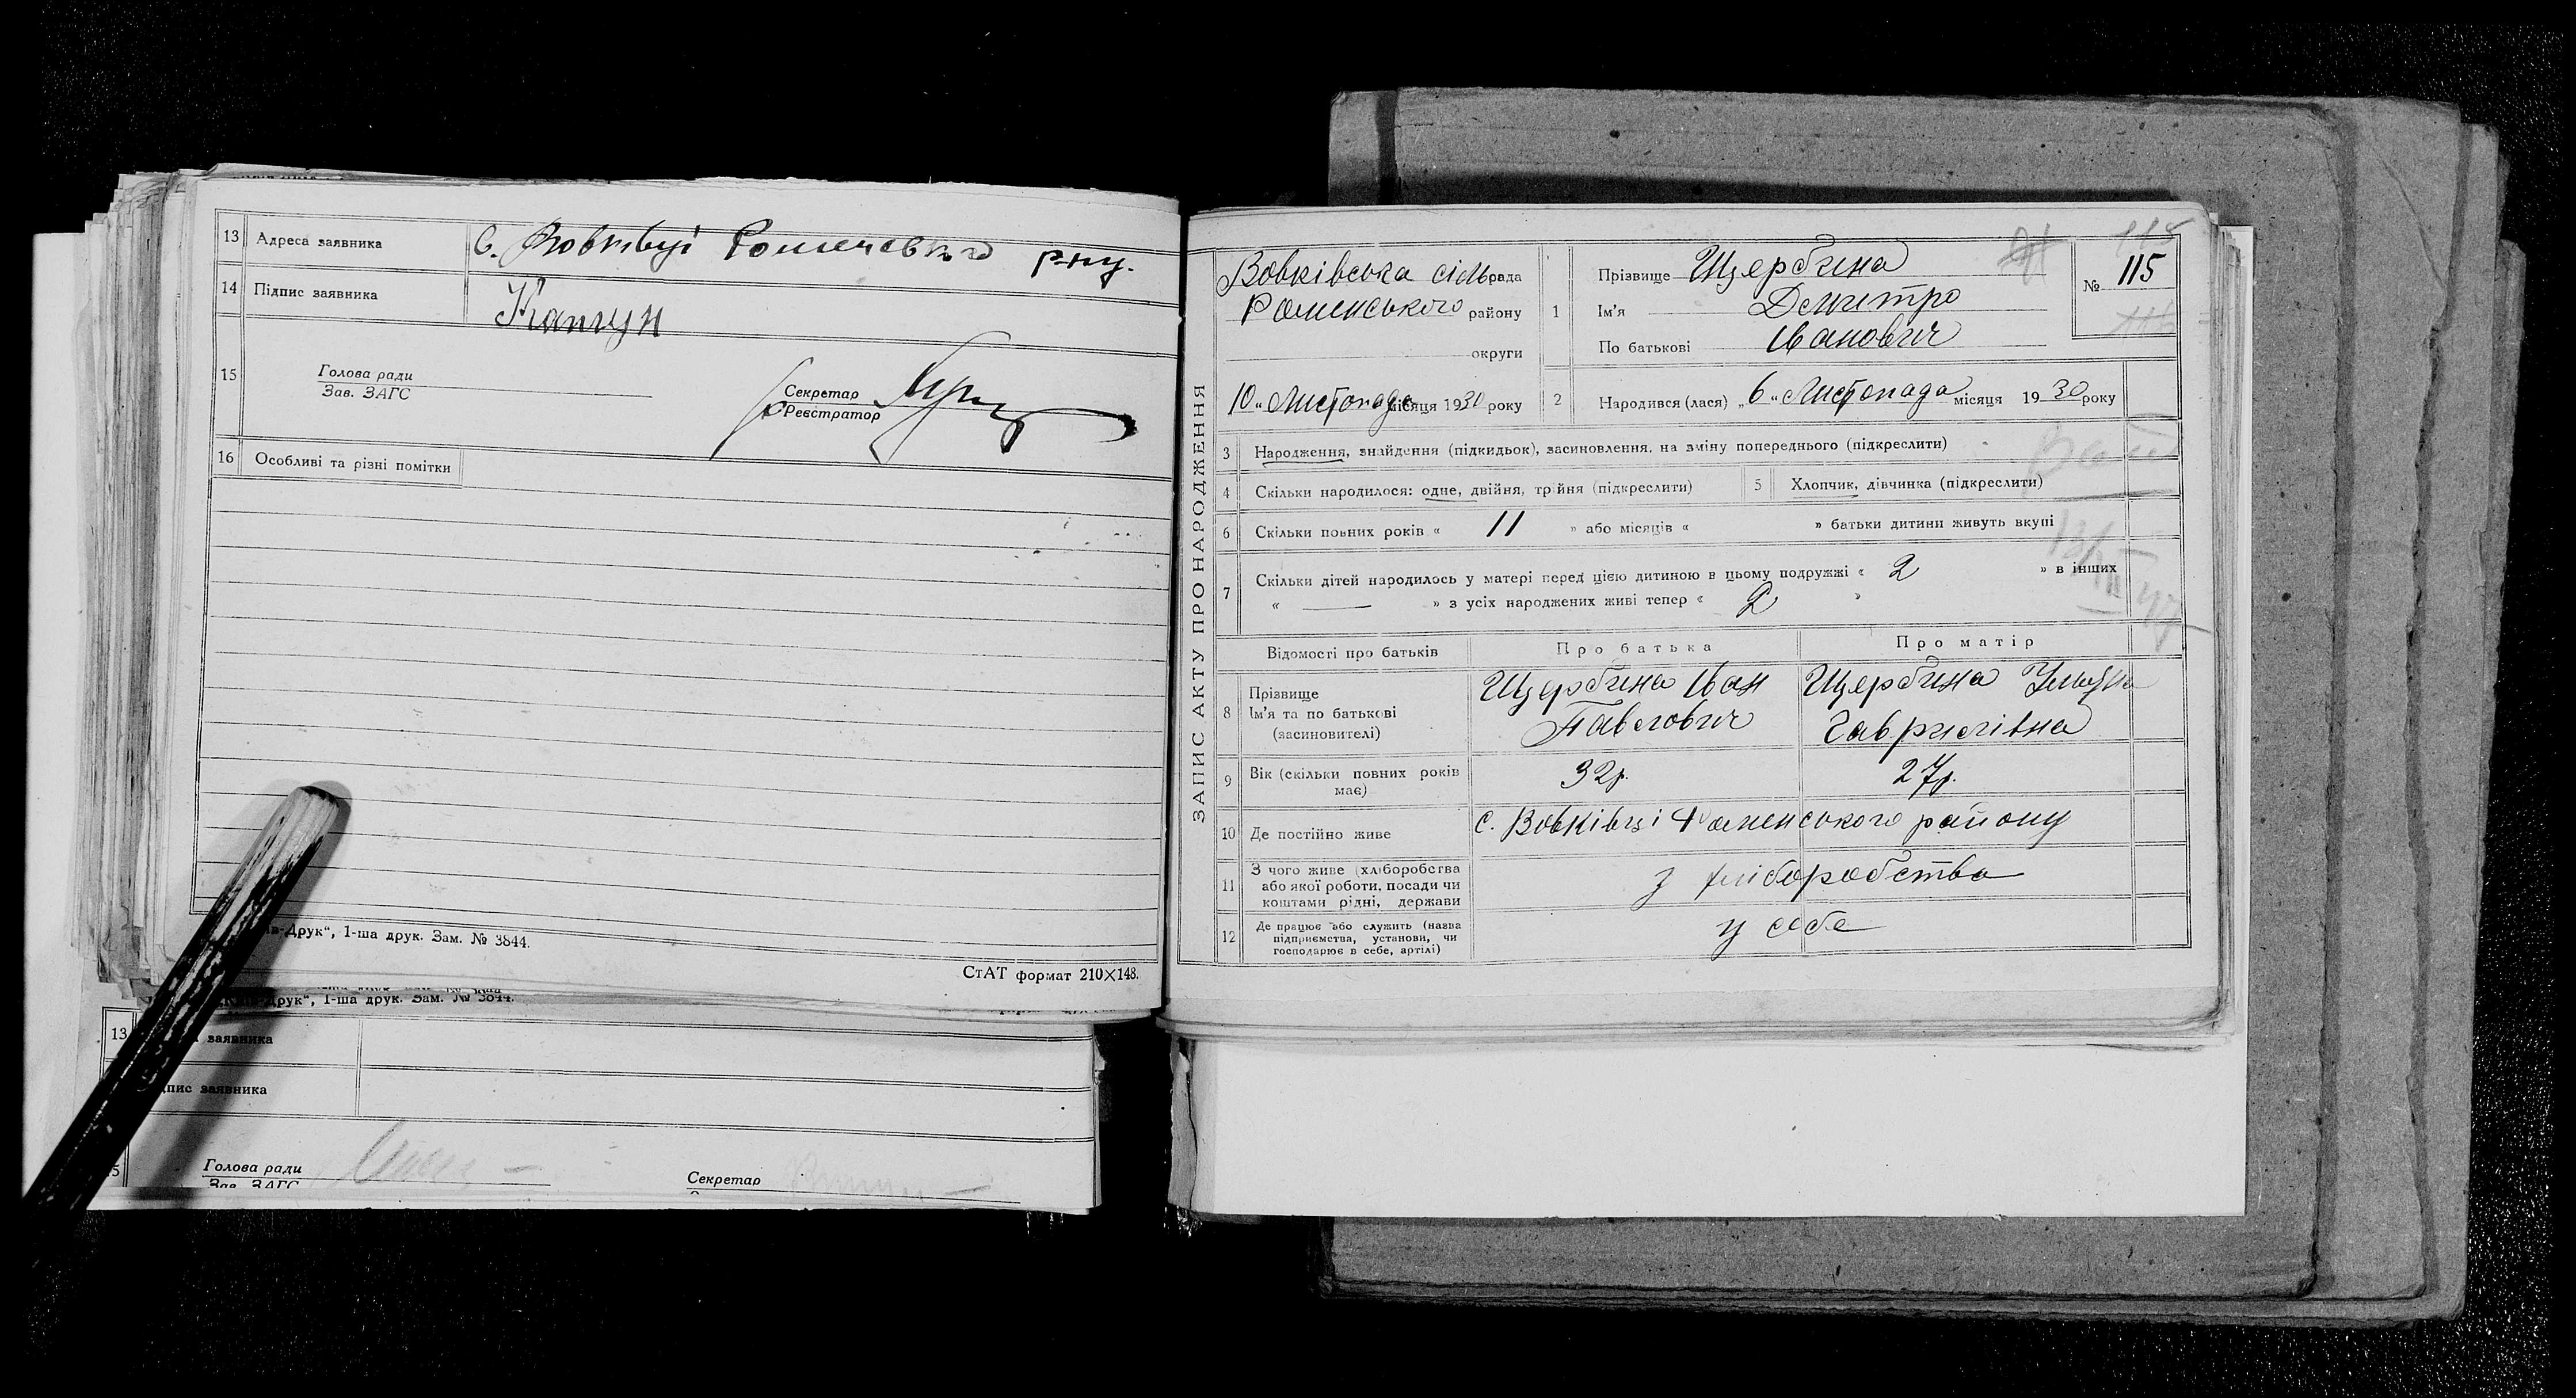 13 Адреса заявника с. Вовківці Роменського р-ну.
14 Підпис заявника
15 Голова ради
Зав. ЗАГС
Секретар
Реєстратор
16 Особливі та різні помітки
-Друк“, 1-ша друк. Зам. № 3844.
СтАТ формат 210×148.
Друк“, 1-ша друк. Зам. № 3844.
13 заявника
заявника
Голова ради
Зав. ЗАГС
Секретар
ЗАПИС АКТУ ПРО НАРОДЖЕННЯ
Вовківська сільрада
Роменського району
округи
10 „ Листопада місяця 1930 року
115
№ 115
1 Прізвище Щербина
Ім'я Дмитро
По батькові Іванович
2 Народився (лася) „6“ Листопада місяця 1930 року
3 Народження, знайдення (підкидьок), засиновлення, на зміну попереднього (підкреслити)
4 Скільки народилося: одне, двійня, трійня (підкреслити) 5 Хлопчик, дівчинка (підкреслити)
6 Скільки повних років « 11 » або місяців « » батьки дитини живуть вкупі
7 Скільки дітей народилось у матері перед цією дитиною в цьому подружжі « 2 » в інших
« — » з усіх народжених живі тепер « 2 »
Відомості про батьків Про батька Про матір
8 Прізвище
Ім'я та по батькові
(засиновителі)
Щербина Іван
Павлович
Щербина
Гаврилівна
9 Вік (скільки повних років має) 32р. 27р.
10 Де постійно живе с. Вовківці Роменського району
11 З чого живе (хліборобства
або якої роботи, посади чи
коштами рідні, держави
з хліборобства
12 Де працює або служить (назва
підприємства, установи, чи
господарює в себе, артілі)
у себе